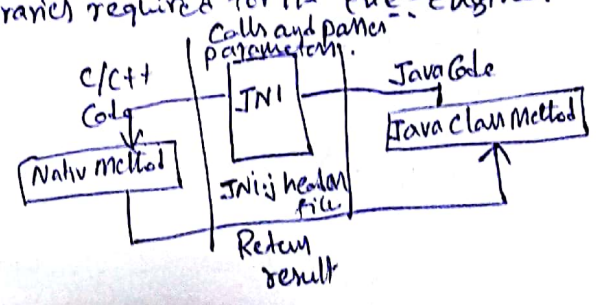 raries required for the
Calls and passes
parameters.
C/C++
Code
JNI
Java Code
Java Class Method
Native Method
JNI.j header
file
Return
result